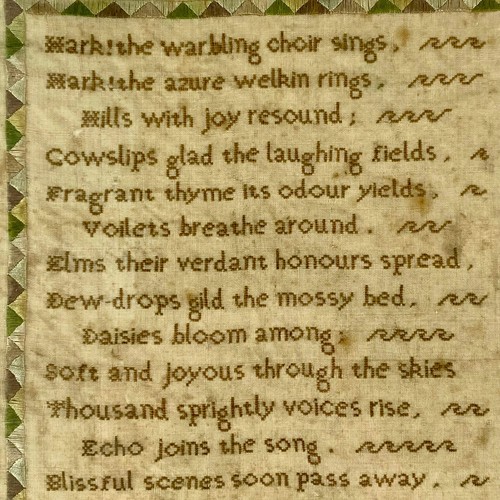 Hark! the warbling choir sings,
Hark! the azure welkin rings,
Hills with joy resound;
Cowslips glad the laughing fields,
Fragrant thyme its odour yields,
Voilets breathe around.
Elms their verdant honours spread,
Dew-drops gild the mossy bed,
Daisies bloom among;
Soft and joyous through the skies
Thousand sprightly voices rise,
Echo joins the song.
Blissful scenes soon pass away,